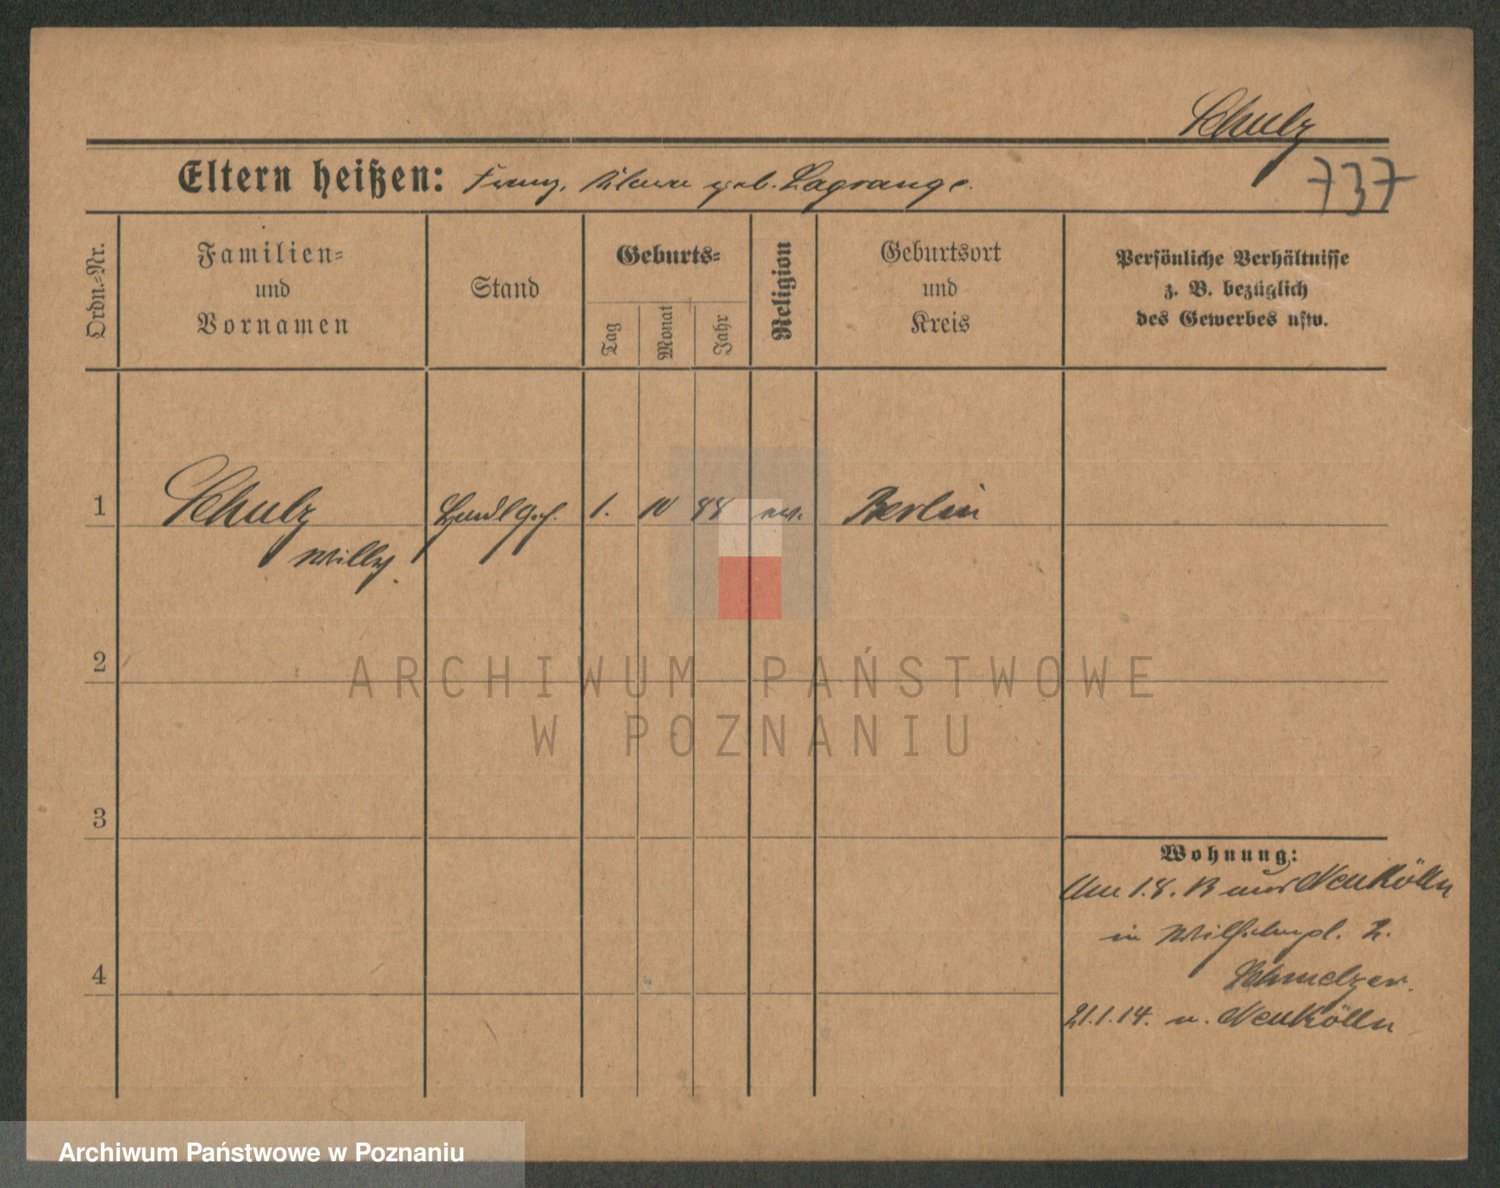 Schulz
737
Eltern heißen: Franz, Klara geb. Lagrange.
Ordn.-Nr.
Familien-
und
Vornamen
Stand
Geburts-
Tag
Monat
Jahr
Religion
Geburtsort
und
Kreis
Persönliche Verhältnisse
z. B. bezüglich
des Gewerbes usw.
1 Schulz 1. IV 88 ev. Berlin
Willy.
2
3
4
Wohnung:
Am 1.8.13 aus Neukölln
in Wilhelmpl. 2.
Schmelzer.
21.1.14. n. Neukölln
ARCHIWUM PAŃSTWOWE
W POZNANIU
Archiwum Państwowe w Poznaniu